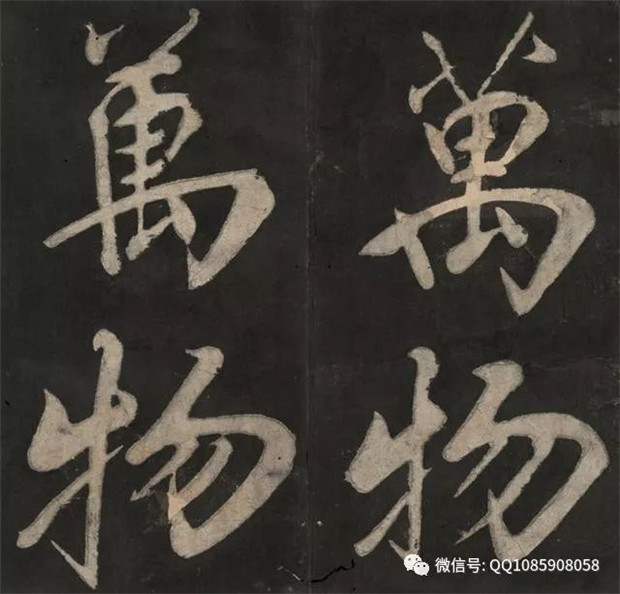 萬物
萬物
微信号: QQ1085908058